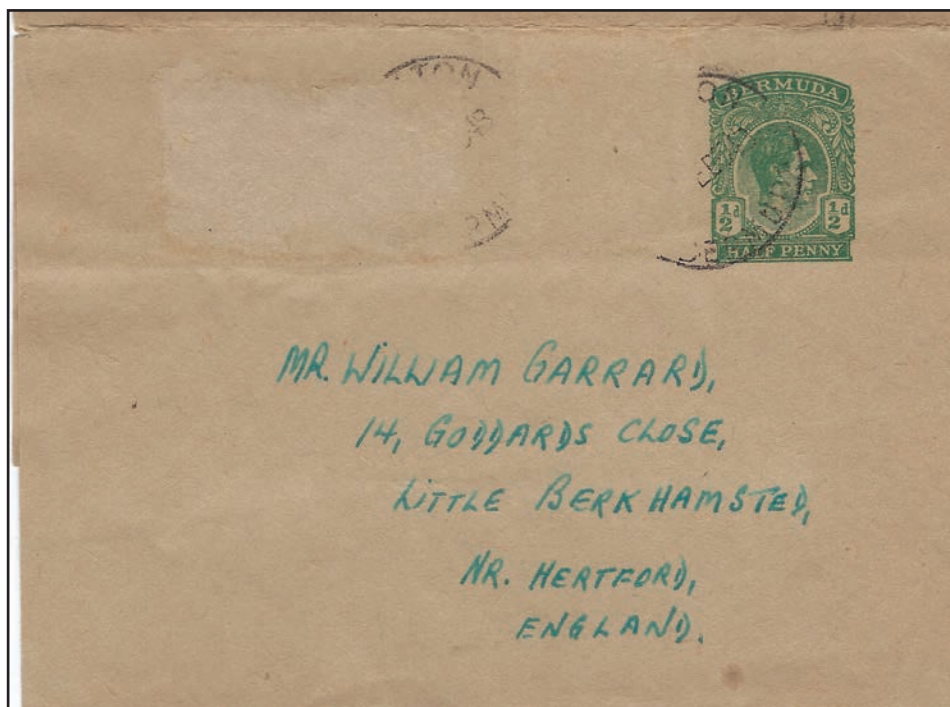 TON
PM
BERMUDA
½d ½d
HALF PENNY
MR. WILLIAM GARRARD,
14, GODDARDS CLOSE,
LITTLE BERKHAMSTED,
NR. HERTFORD,
ENGLAND.